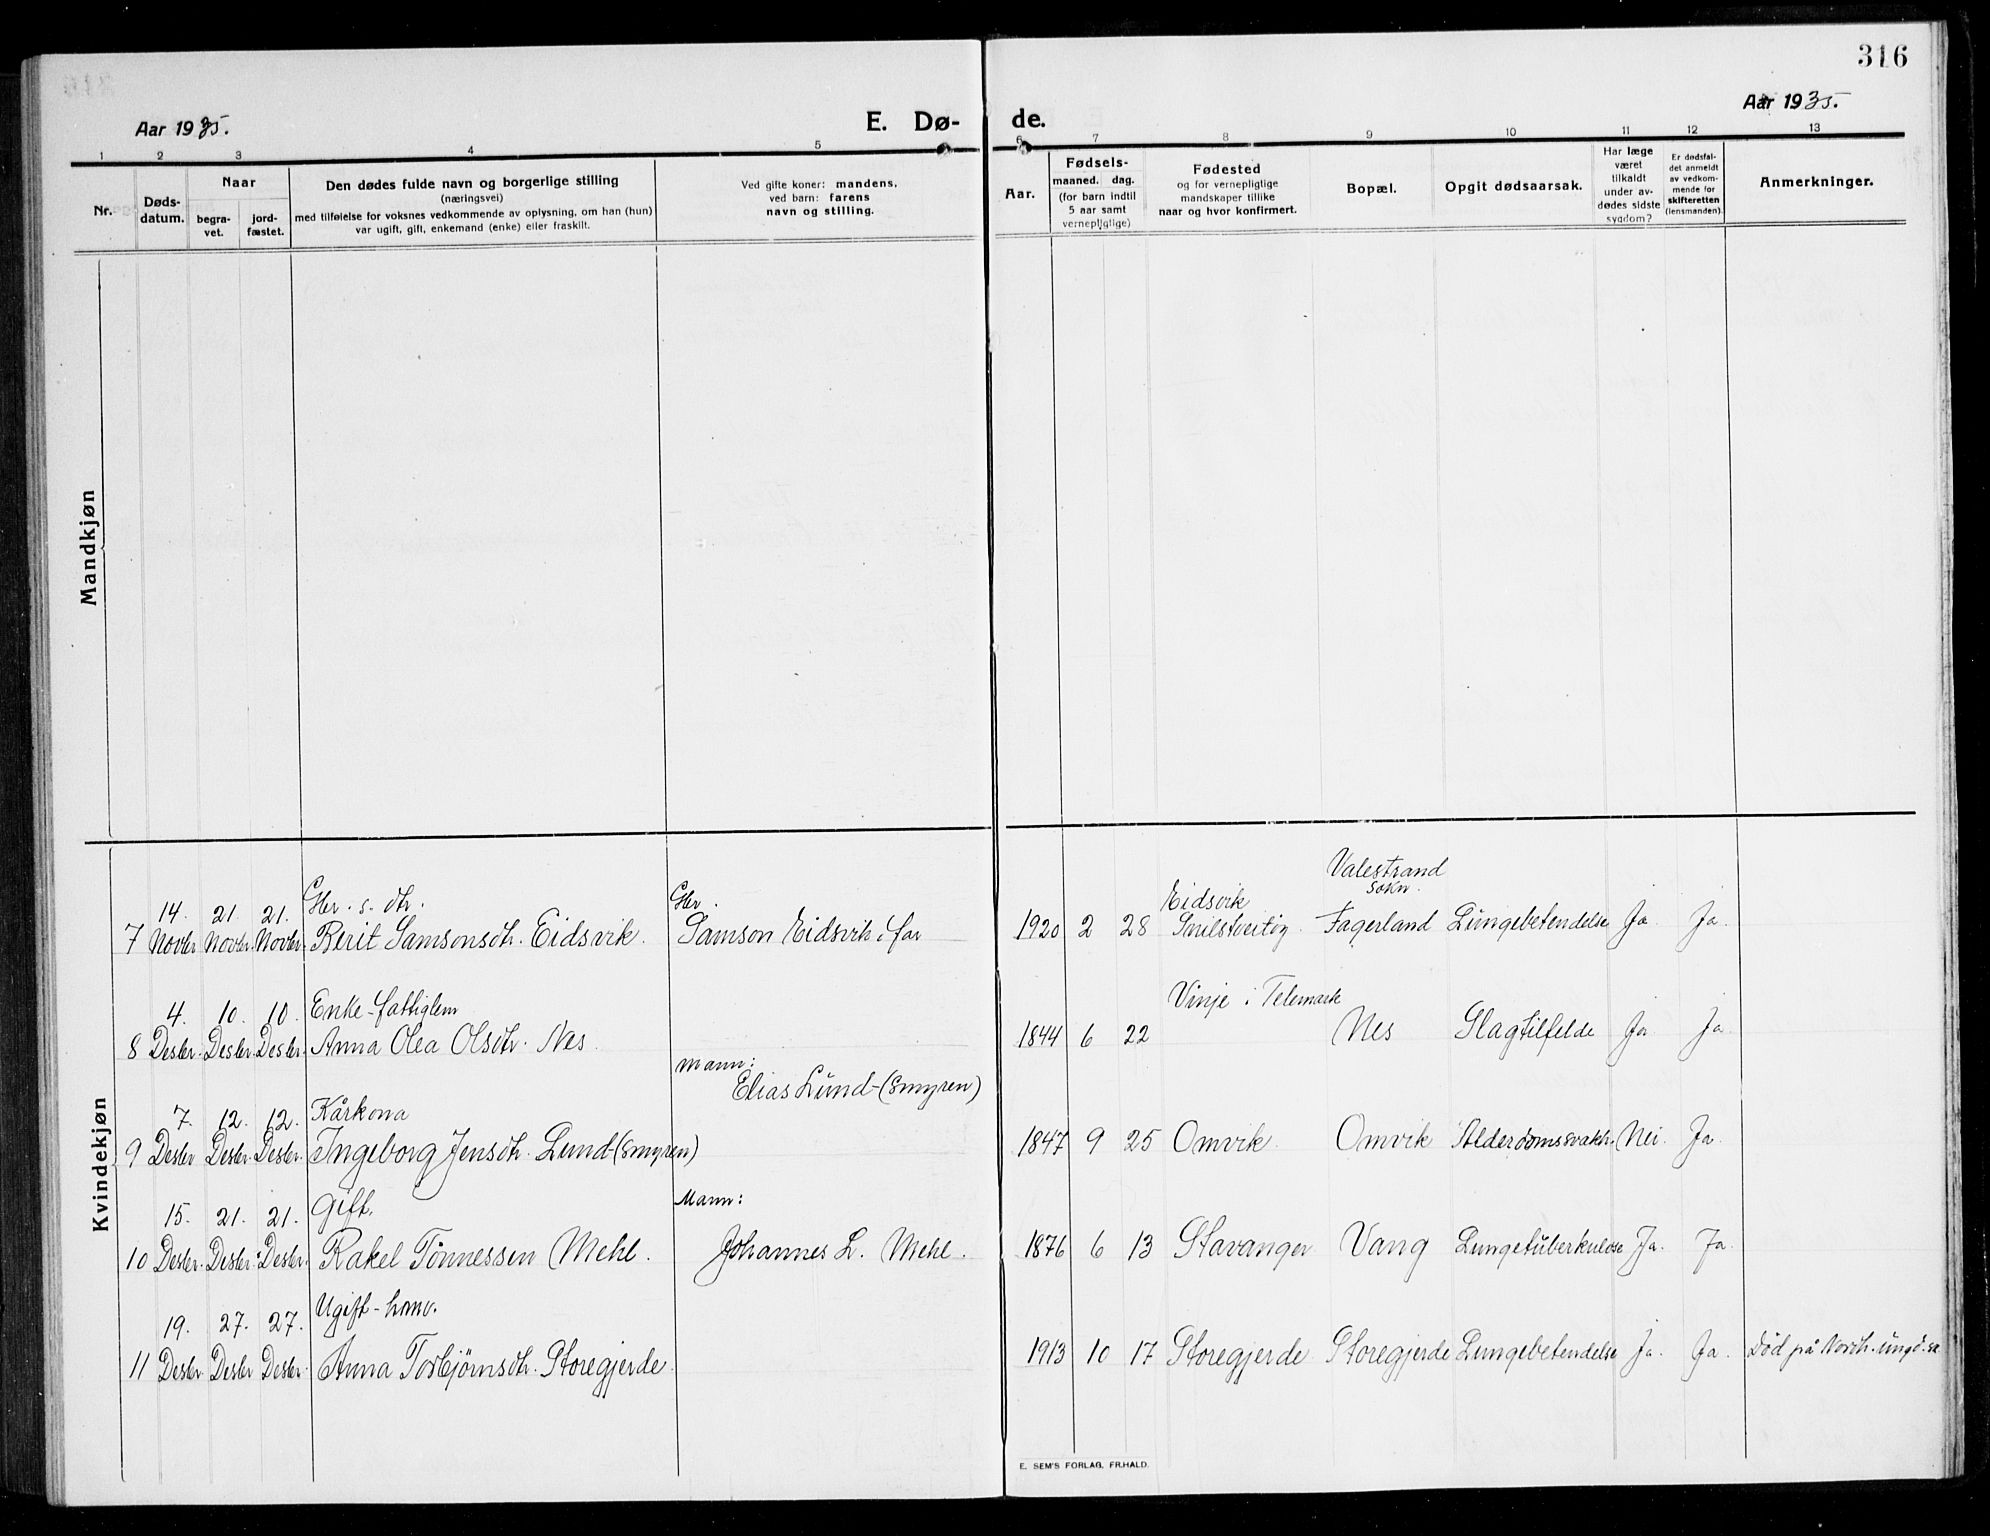 316
Aar 1935.
E. Dø-
de.
Aar 1935.
1 2 3 4 5 6 7 8 9 10 11 12 13
Nr.
Døds-
datum.
Naar
begra-
vet.
jord-
fæstet.
Den dødes fulde navn og borgerlige stilling
(næringsvei)
med tilføielse for voksnes vedkommende av oplysning, om han (hun)
var ugift, gift, enkemand (enke) eller fraskilt.
Ved gifte koner: mandens,
ved barn: farens
navn og stilling.
Aar.
Fødsels-
maaned. dag.
(for barn indtil
5 aar samt
vernepligtige)
Fødested
og for vernepligtige
mandskaper tillike
naar og hvor konfirmert.
Bopæl.
Opgit dødsaarsak.
Har læge
været
tilkaldt
under av-
dødes sidste
sygdom?
Er dødsfal-
det anmeldt
av vedkom-
mende for
skifteretten
(lensmanden).
Anmerkninger.
Mandkjøn
Kvindekjøn
14. 21. 21. Gbr. s. dtr. Gbr. Eidsvik Valestrand sokn.
7 Novbr. Novbr. Novbr. Berit Samsonsdtr. Eidsvik. Samson Eidsvik far 1920 2 28 Fagerland Lungebetendelse Ja Ja.
4. 10. 10. Enke-fattiglem Vinje i Telemark
8 Desbr. Desbr. Desbr. Anna Olea Olsdtr. Nes. 1844 6 22 Nes Slagtilfelde Ja Ja
Mann:
Elias Lund-(Smyren)
7. 12. 12. Kårkona
9 Desbr Desbr. Desbr. Ingeborg Jensdtr. Lund-(Smyren) 1847 9 25 Omvik. Omvik Alderdomssvakh. Nei. Ja.
15. 21. 21. Gift. Mann:
10 Desbr. Desbr. Desbr. Rakel Tønnessen Mehl. Johannes L. Mehl. 1876 6 13 Stavanger Vang Lungetuberkulose Ja. Ja.
19. 27. 27. Ugift-
11 Desbr. Desbr Desbr. Anna Torbjørnsdtr. Storegjerde. 1913 10 17 Storegjerde Storegjerde Lungebetendelse Ja. Ja. Død på
E. SEM'S FORLAG, FR.HALD.